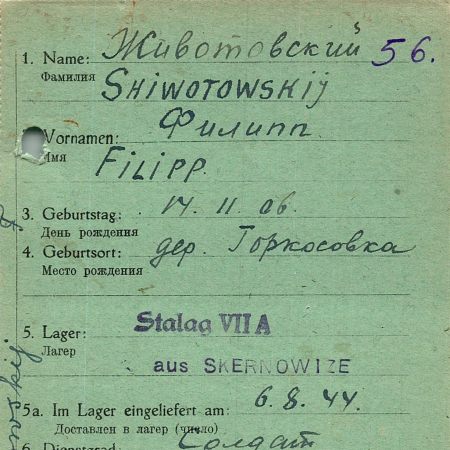 1. Name: Животовский 56.
Фамилия
SHIWOTOWSKIJ
Филипп.
Vornamen:
Имя
FILIPP.
3. Geburtstag: 14. 11. 06.
День рождения
4. Geburtsort: дер. Горкосовка
Место рождения
5. Lager: Stalag VII A
Лагер
aus SKERNOWIZE
5a. Im Lager eingeliefert am: 6. 8. 44.
Доставлен в лагер (число)
6. Dienstgrad: Солдат